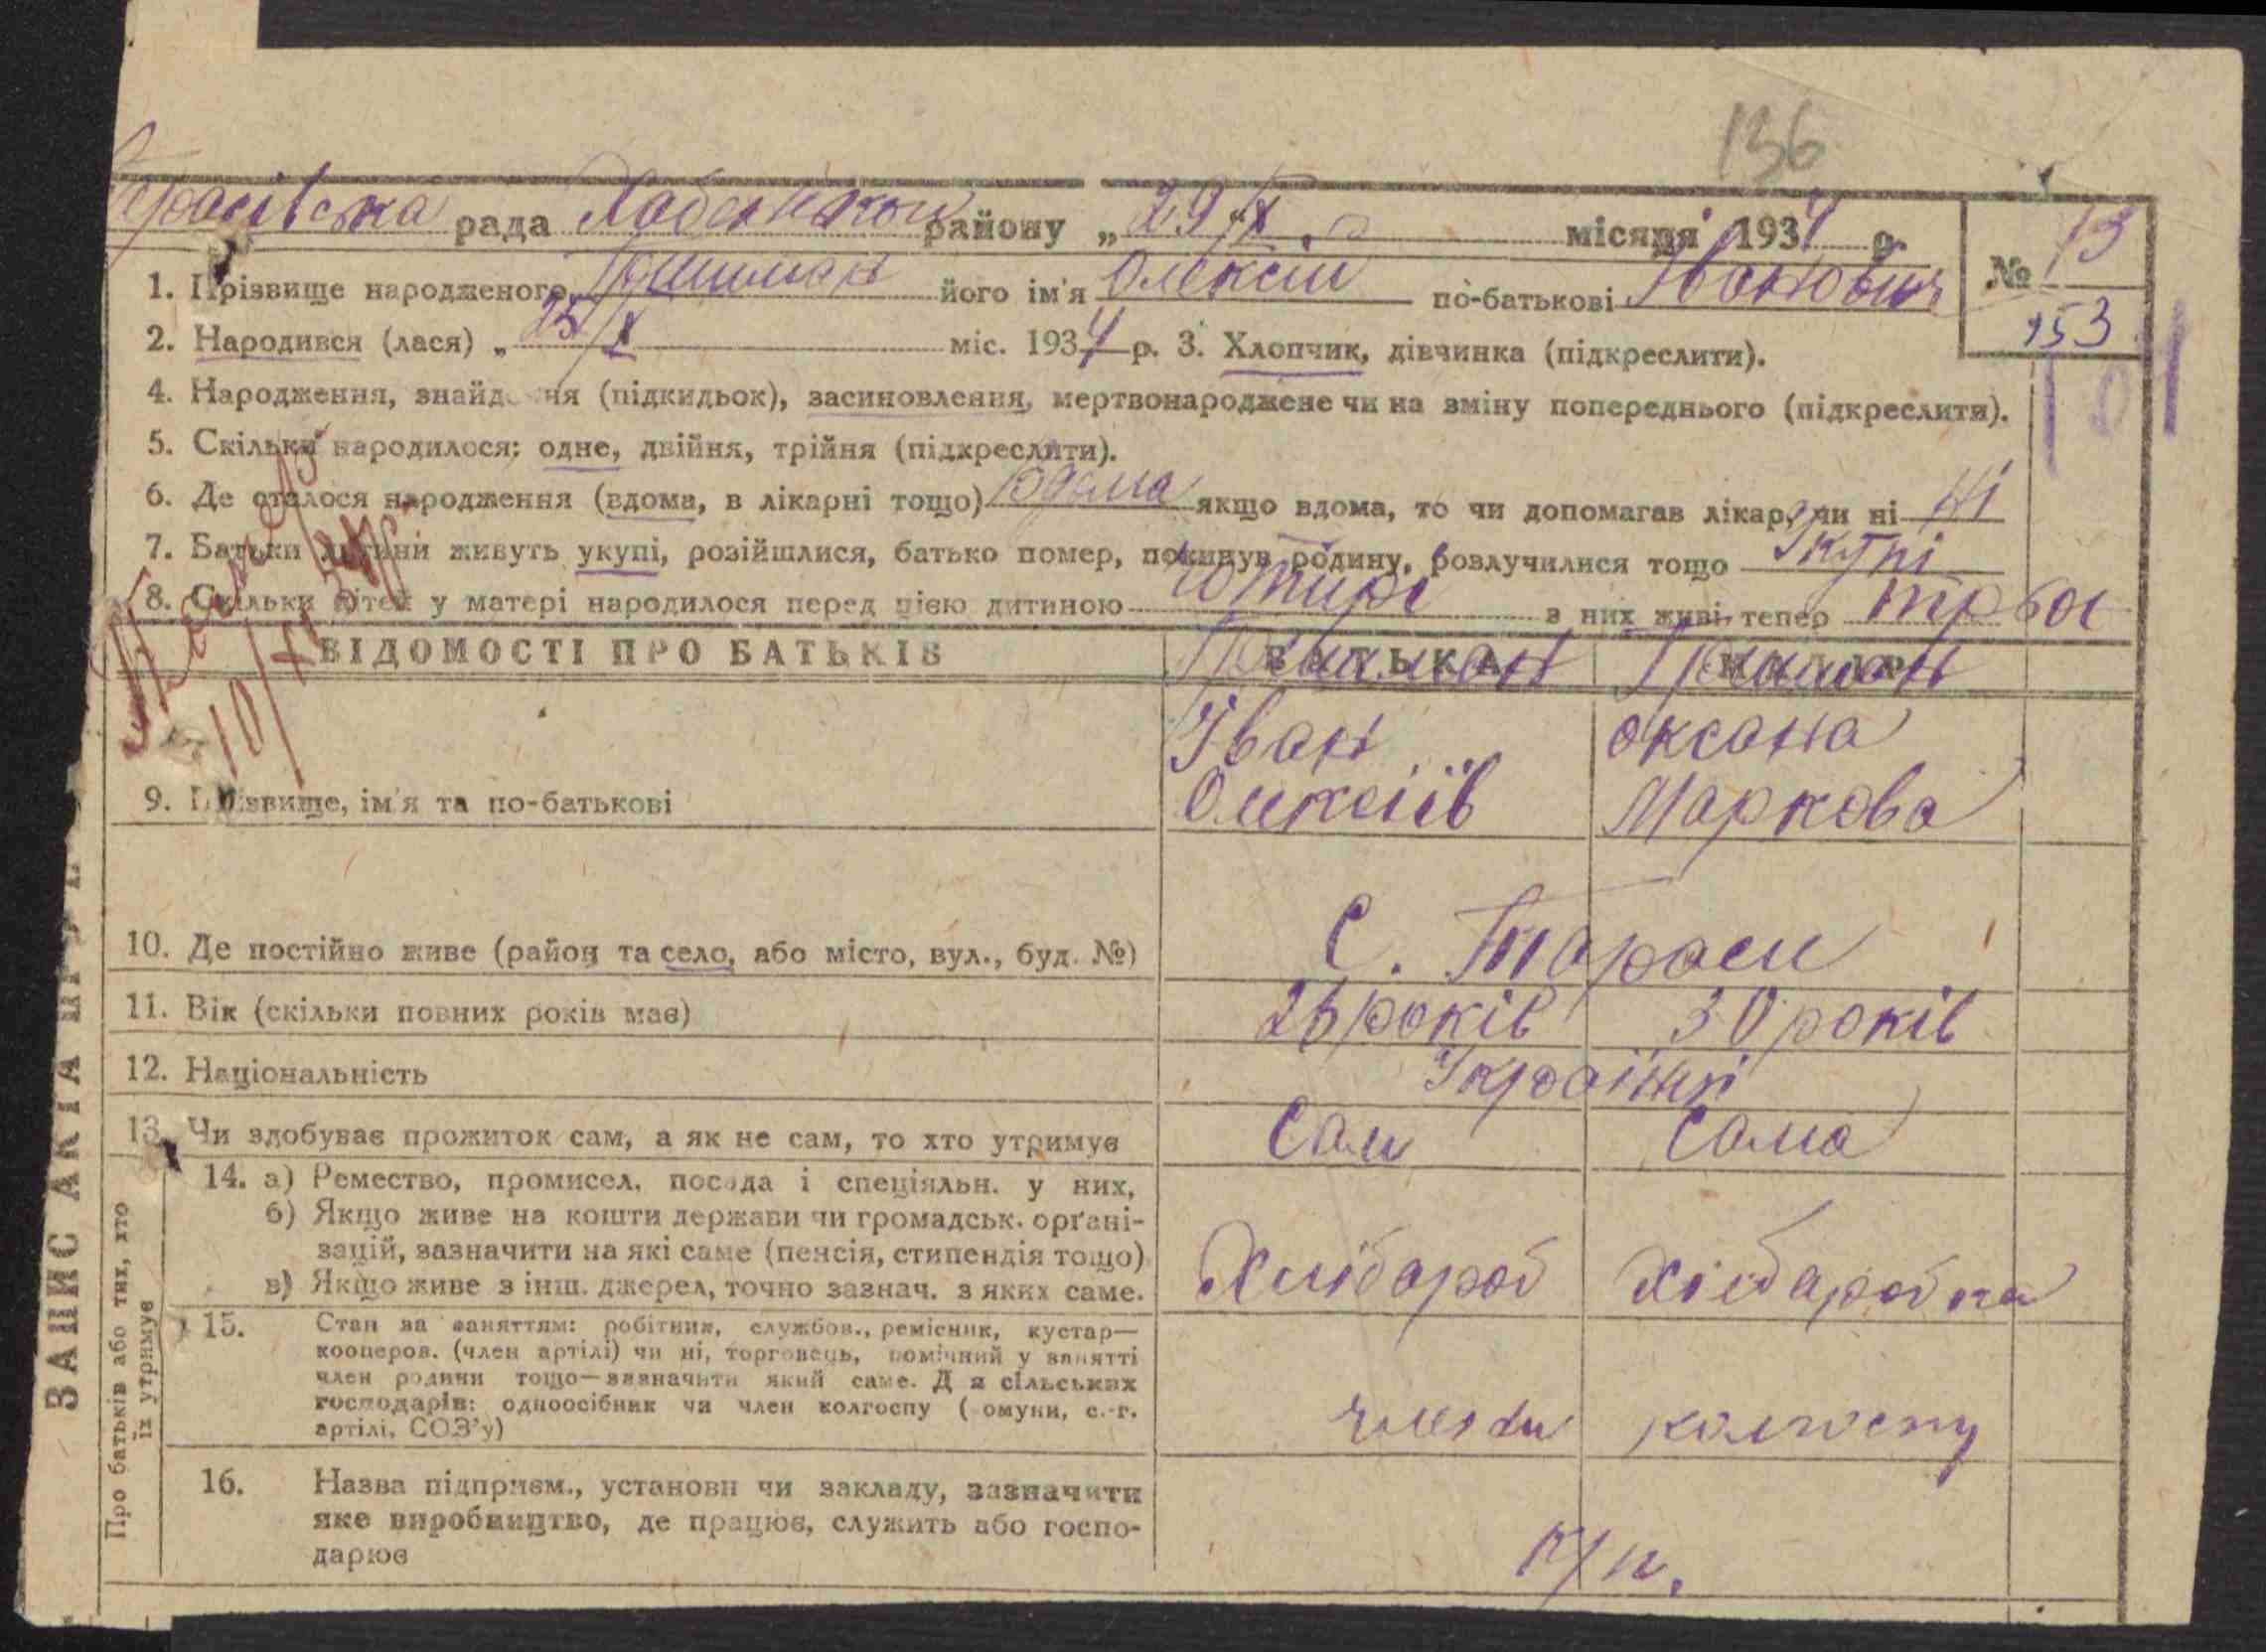 136
Тарасівська рада Хабенського району „ 29/X місяця 1934 р. № 13
1. Прізвище народженого Гришман його ім'я Олексій по-батькові Іванович
153
2. Народився (лася) „ 25/X міс. 1934 р. 3. Хлопчик, дівчинка (підкреслити).
4. Народження, знайдення (підкидьок), засиновлення, мертвонароджене чи на зміну попереднього (підкреслити).
5. Скільки народилося: одне, двійня, трійня (підкреслити).
6. Де сталося народження (вдома, в лікарні тощо) вдома якщо вдома, то чи допомагав лікар, чи ні ні
7. Батьки дитини живуть укупі, розійшлися, батько помер, покинув родину, розлучилися тощо Укупі
8. Скільки дітей у матері народилося перед цією дитиною чотирі з них живі тепер троє
ВІДОМОСТІ ПРО БАТЬКІВ БАТЬКА МАТІР
Гришман Гришман
Іван Оксана
9. Прізвище, ім'я та по-батькові Олексіїв Маркова
10. Де постійно живе (район та село, або місто, вул., буд. №) С. Тараси
11. Вік (скільки повних років має) 26 років 30 років
12. Національність Українці
13. Чи здобуває прожиток сам, а як не сам, то хто утримує Сам Сама
14. а) Ремество, промисел, посада і спеціяльн. у них,
б) Якщо живе на кошти держави чи громадськ. орґані-
зацій, зазначити на які саме (пенсія, стипендія тощо)
в) Якщо живе з інш. джерел, точно зазнач. з яких саме.
Хлібароб Хлібаробка
15. Стан за заняттям: робітник, службов., ремісник, кустар—
кооперов. (член артілі) чи ні, торговець, помічний у занятті
член родини тощо—зазначити який саме. Для сільських
господарів: одноосібник чи член колгоспу (комуни, с.-г.
артілі, СОЗ'у)
члени колгоспу
16. Назва підприєм., установи чи закладу, зазначити
яке виробництво, де працює, служить або госпо-
дарює
ЗАПИС АКТА ПРО
Про батьків або тих, хто
їх утримує